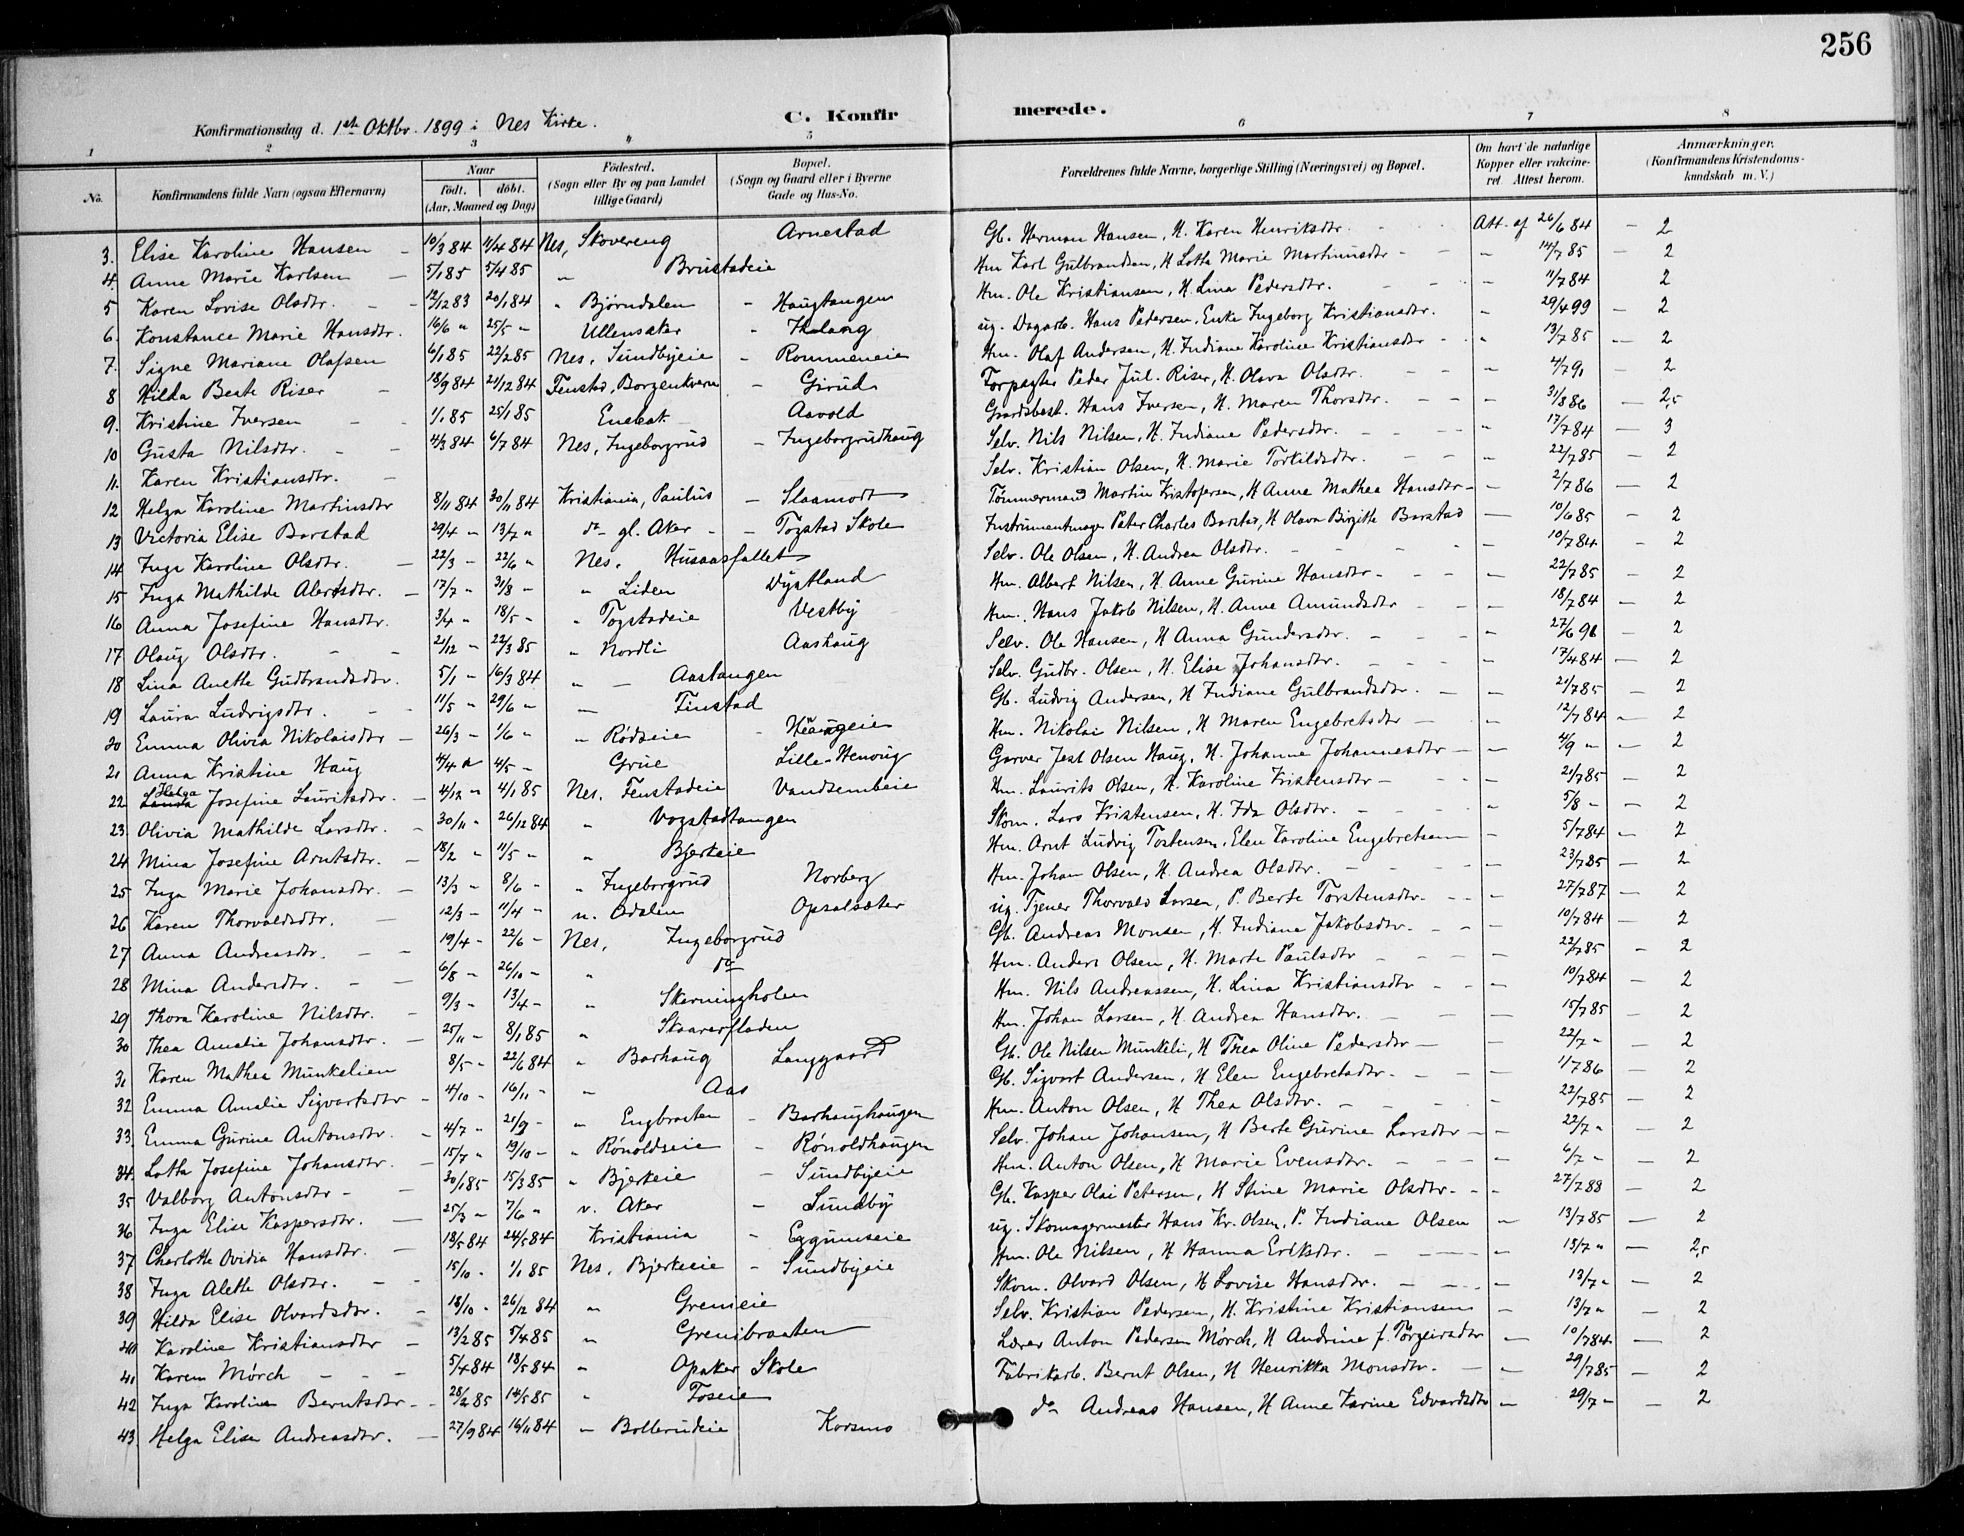 256
Konfirmationsdag d. 1ste Oktbr. 1899 i Nes Kirke.
C. Konfir merede.
1 2 3 4 5 6 7 8
No. Konfirmandens fulde Navn (ogsaa Efternavn) Naar født. døbt. (Aar, Maaned og Dag) Fødested. (Sogn eller By og paa Landet tillige Gaard) Bopæl. (Sogn og Gaard eller i Byerne Gade og Hus-No. Forældrenes fulde Navne, borgerlige Stilling (Næringsvei) og Bopæl. Om havt de naturlige Kopper eller vaccineret Attest herom. Anmærkninger. (Konfirmandens Kristendomskundskab m. V.)
3. Elise Karoline Hansen 10/3 84 11/4 84 Nes, Skovereng Arnestad Gb. Herman Hansen, H. Karen Henriksdtr. Att. af 26/6 84 2
4. Anne Marie Karlsen 5/1 85 5/4 85 " Brustadeie Hm Karl Gulbrandsen, H Lotta Marie Martinusdtr 14/7 85 2
5 Karen Lovise Olsdtr. 12/12 83 20/1 84 " Bjørndalen Haugtangen Hm. Ole Kristiansen, H. Lina Pedersdtr. 11/7 84 2
6. Konstance Marie Hansdtr. 16/6 " 25/5 " Ullensaker ug. Dagarb. Hans Pedersen, Enke Ingeborg Kristiansdtr. 29/4 99 2
7. Signe Mariane Olafsen 6/1 85 22/2 85 Nes, Sundbyeie Rommeneie Hm. Olaf Andersen, H. Indiane Karoline Kristiansdtr 13/7 85 2
8 Hilda Beate Riser 18/9 84 21/12 84 Fenstad, Borgenkvern Girud Forpagter Peder Jul. Riser, H. Olava Olsdtr. 4/7 91 2
9. Kristine Iversen 1/1 85 25/1 85 Enebak Aavold Gaardsbest. Hans Iversen, H. Maren Thorsdtr. 31/8 86 2,5
10 Gusta Nilsdtr. 4/3 84 6/7 84 Nes, Ingeborgrud Ingeborgrudhaug Selv. Nils Nilsen, H. Indiane Pedersdtr. 17/7 84 3
11. Karen Kristiansdtr. Selv. Kristian Olsen, H. Marie Torkildsdtr. 22/7 85 2
12 Helga Karoline Martinsdtr 8/11 84 30/11 84 Kristiania, Paulus Slaamodt Tømmermand Martin Kristofersen, H Anne Mathea Hansdtr 2/7 86 2
13 Victoria Elise Barstad 29/4 " 13/7 " do gl. Aker Togstad Skole Instrumentmager Peter Charles Barstad, H Olava Birgitte Barstad 10/6 85 2
14 Inga Karoline Olsdtr. 22/3 " 22/6 " Nes, Husaasfallet Selv. Ole Olsen, H. Andrea Olsdtr. 10/7 84 2
15 Inga Mathilde Albertsdtr. 17/7 " 31/8 " " Liden Dystland Hm. Albert Nilsen, H. Anne Gurine Hansdtr 22/7 85 2
16 Anna Josefine Hansdtr. 3/4 " 18/5 " " Togstadeie Vestby Hm. Hans Jakob Nilsen, H. Anne Amundsdtr 18/7 84 2
17 Olaug Olsdtr. 21/12 " 22/3 85 " Nordli Aashaug Selv. Ole Hansen, H Anna Gundersdtr. 27/6 98 2
18 Lina Anette Gudbrandsdtr. 5/1 " 16/3 84 " Aastangen Selv. Gudbr. Olsen, H. Elise Johansdtr. 17/4 84 2
19 Laura Ludvigsdtr. 11/5 " 29/6 " Finstad Gb. Ludvig Andersen, H Indiane Gulbrandsdtr. 21/7 85 2
20 Emma Olivia Nikolaisdtr 26/3 " 1/6 " " Rødseie Hm. Nikolai Nilsen, H Maren Engebretsdtr 12/7 84 2
21 Anna Kristine Haug 4/4 " 4/5 " Grue Lille-Henoug Garver Jest Olsen Haug, H. Johanne Johannesdtr 4/9 " 2
22 Helga Josefine Lauritsdtr. 4/12 " 4/1 85 Nes, Fenstadeie Vandsembeie Hm. Laurits Olsen, H. Karoline Kristensdtr 21/7 85 2
23 Olivia Mathilde Larsdtr. 30/11 " 26/12 84 " Vogstadtangen Skom. Lars Kristensen, H. Ida Olsdtr. 5/8 " 2
24 Mina Josefine Arntsdtr. 18/2 " 11/5 " " Bjerkeie Hm. Arnt Ludvig Tostensen, Elen Karoline Engebretsen 5/7 84 2
25 Inga Marie Johansdtr. 13/3 " 8/6 " " Ingeborgrud Norberg Hm. Johan Olsen, H. Andrea Olsdtr. 23/7 85 2
26 Karen Thorvaldsdtr. 12/3 " 11/4 " n. Odalen Opsalsæter ug. Tjener Thorvald Larsen, P. Berte Torstensdtr. 27/7 87 2
27 Anna Andreasdtr. 19/4 " 22/6 " Nes, Ingeborgrud Gb. Andreas Monsen, H. Indiane Jakobsdtr. 10/7 84 2
28 Mina Andersdtr. 6/8 " 26/10 " " do Hm. Anders Olsen, H. Marte Paulsdtr 22/7 85 2
29 Thora Karoline Nilsdtr. 9/3 " 13/4 " " Skerningholen Hm. Nils Andreassen, H. Lina Kristiansdtr 10/7 84 2
30 Thea Amalie Johansdtr. 25/11 " 8/1 85 " Skaarerfladen Hm. Johan Larsen, H. Andrea Hansdtr. 15/7 85 2
31 Karen Mathea Munkelien 8/5 " 22/6 84 " Barhaug Langgaard Gb. Ole Nilsen Munkeli, H Thea Oline Pedersdtr 22/7 " 2
32 Emma Amalie Sigvartsdtr 4/10 " 16/11 " " Aas Gb. Sigvart Andersen, H Elen Engebretsdtr. 1/7 86 2
33 Emma Gurine Antonsdtr. 4/7 " 21/9 " " Engbraaten Barhaughaugen Hm. Anton Olsen, H Thea Olsdtr. 22/7 85 2
34. Lotta Josefine Johansdtr. 15/7 " 19/10 " " Rónoldseie Rónoldhaugen Selv. Johan Johansen, H Berte Gurine Larsdtr 22/7 " 2
35 Valborg Antonsdtr 20/1 85 15/3 85 " Bjerkeie Sundbyeie Hm. Anton Olsen, H Marie Evensdtr. 6/7 " 2
36 Inga Elise Kaspersdtr. 25/3 " 7/6 " v. Aker Sundby Gb. Kasper Olai Petersen, H Stine Marie Olsdtr. 27/7 88 2
37 Charlotte Ovidia Hansdtr. 18/5 84 24/5 84 Kristiania Eggumseie ug. Skomagermester Hans Kr. Olsen, P. Indiane Olsen 13/7 85 2
38 Inga Alette Olsdtr. 15/10 " 1/1 85 Nes, Bjerkeie Sundbyeie Hm. Ole Nilsen, H Hanna Eriksdtr. 13/7 " 2,5
39 Hilda Elise Olvardsdtr. 18/10 " 26/12 84 " Greneie Skom. Olvard Olsen, H Lovise Hansdtr. 13/7 " 2
40 Karoline Kristiansdtr 13/2 85 5/4 85 " Grenibraaten Selv. Kristian Pedersen, H. Kristine Kristiansen 13/7 " 2
41 Karen Mørch 5/4 84 18/5 84 " Opaker Skole Lærer Anton Pedersen Mørch, H Andrine f. Torgeirsdtr 10/7 84 2
42 Inga Karoline Berntsdtr 28/2 85 14/5 85 " Foseie Fabrikarb. Bernt Olsen, H Henrikka Monsdtr. 29/7 85 2
43 Helga Elise Andreasdtr. 27/9 84 16/11 84 " Bollerudeie Korsmo do Andreas Hansen, H Anne Karine Edvardsdtr 29/7 " 2